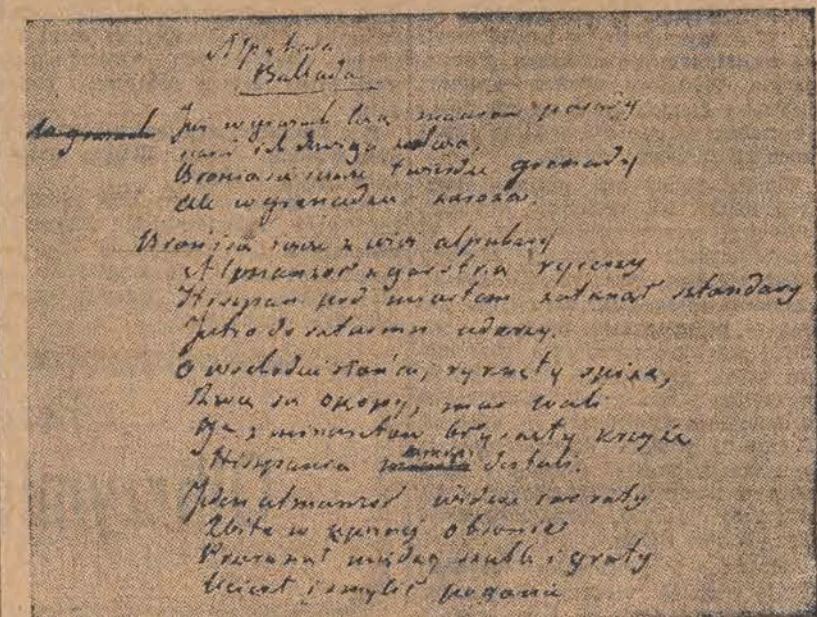 Alpuhara
Ballada
Już w gruzach leżą maurów posady
naród ich dźwiga żelaza,
Bronią się iescze twierdze grenady
ale w grenadzie zaraza.
Broni się iescze z wież alpuhary
Almanzor z garstką rycerzy
Hiszpan pod miastem zatknął sztandary
Jutro do szturmu uderzy.
O wschodzie słońca, ryknęły spiże,
Rwą się okopy, mur wali
Już z minaretów błysnęły krzyże
Hiszpanie zamku dostali.
Jeden almanzor widząc swe roty
Zbite w upornej obronie
Przerznął między szable i groty
Uciekł i zmylił pogonie